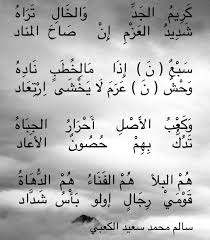 كَرِيمُ الجَدِّ وَالخَالِ تَرَاهُ
شَدِيدُ العَزْمِ إِنْ صَاحَ المناد
سَبْعٌ ( نَ ) إِذَا مَالخُطَبِ نَادِهُ
وَحْشٍ ( نَ ) عَرَمَ لَا يَخْشَى ارْتِعَاد
وَكَعْبُ الأَصْلِ أَحْرَارُ الجِبَاهُ
تَدُكُ بِهِمْ حُصُونُ الأعاد
هُمْ البلاَ هُمْ الفَنَاءُ هُمْ الدُّهَاةُ
قَوْمِيْ رِجَالٍ اولو بَأْسُ شَدَّاد
سالم محمد سعيد الكعبي